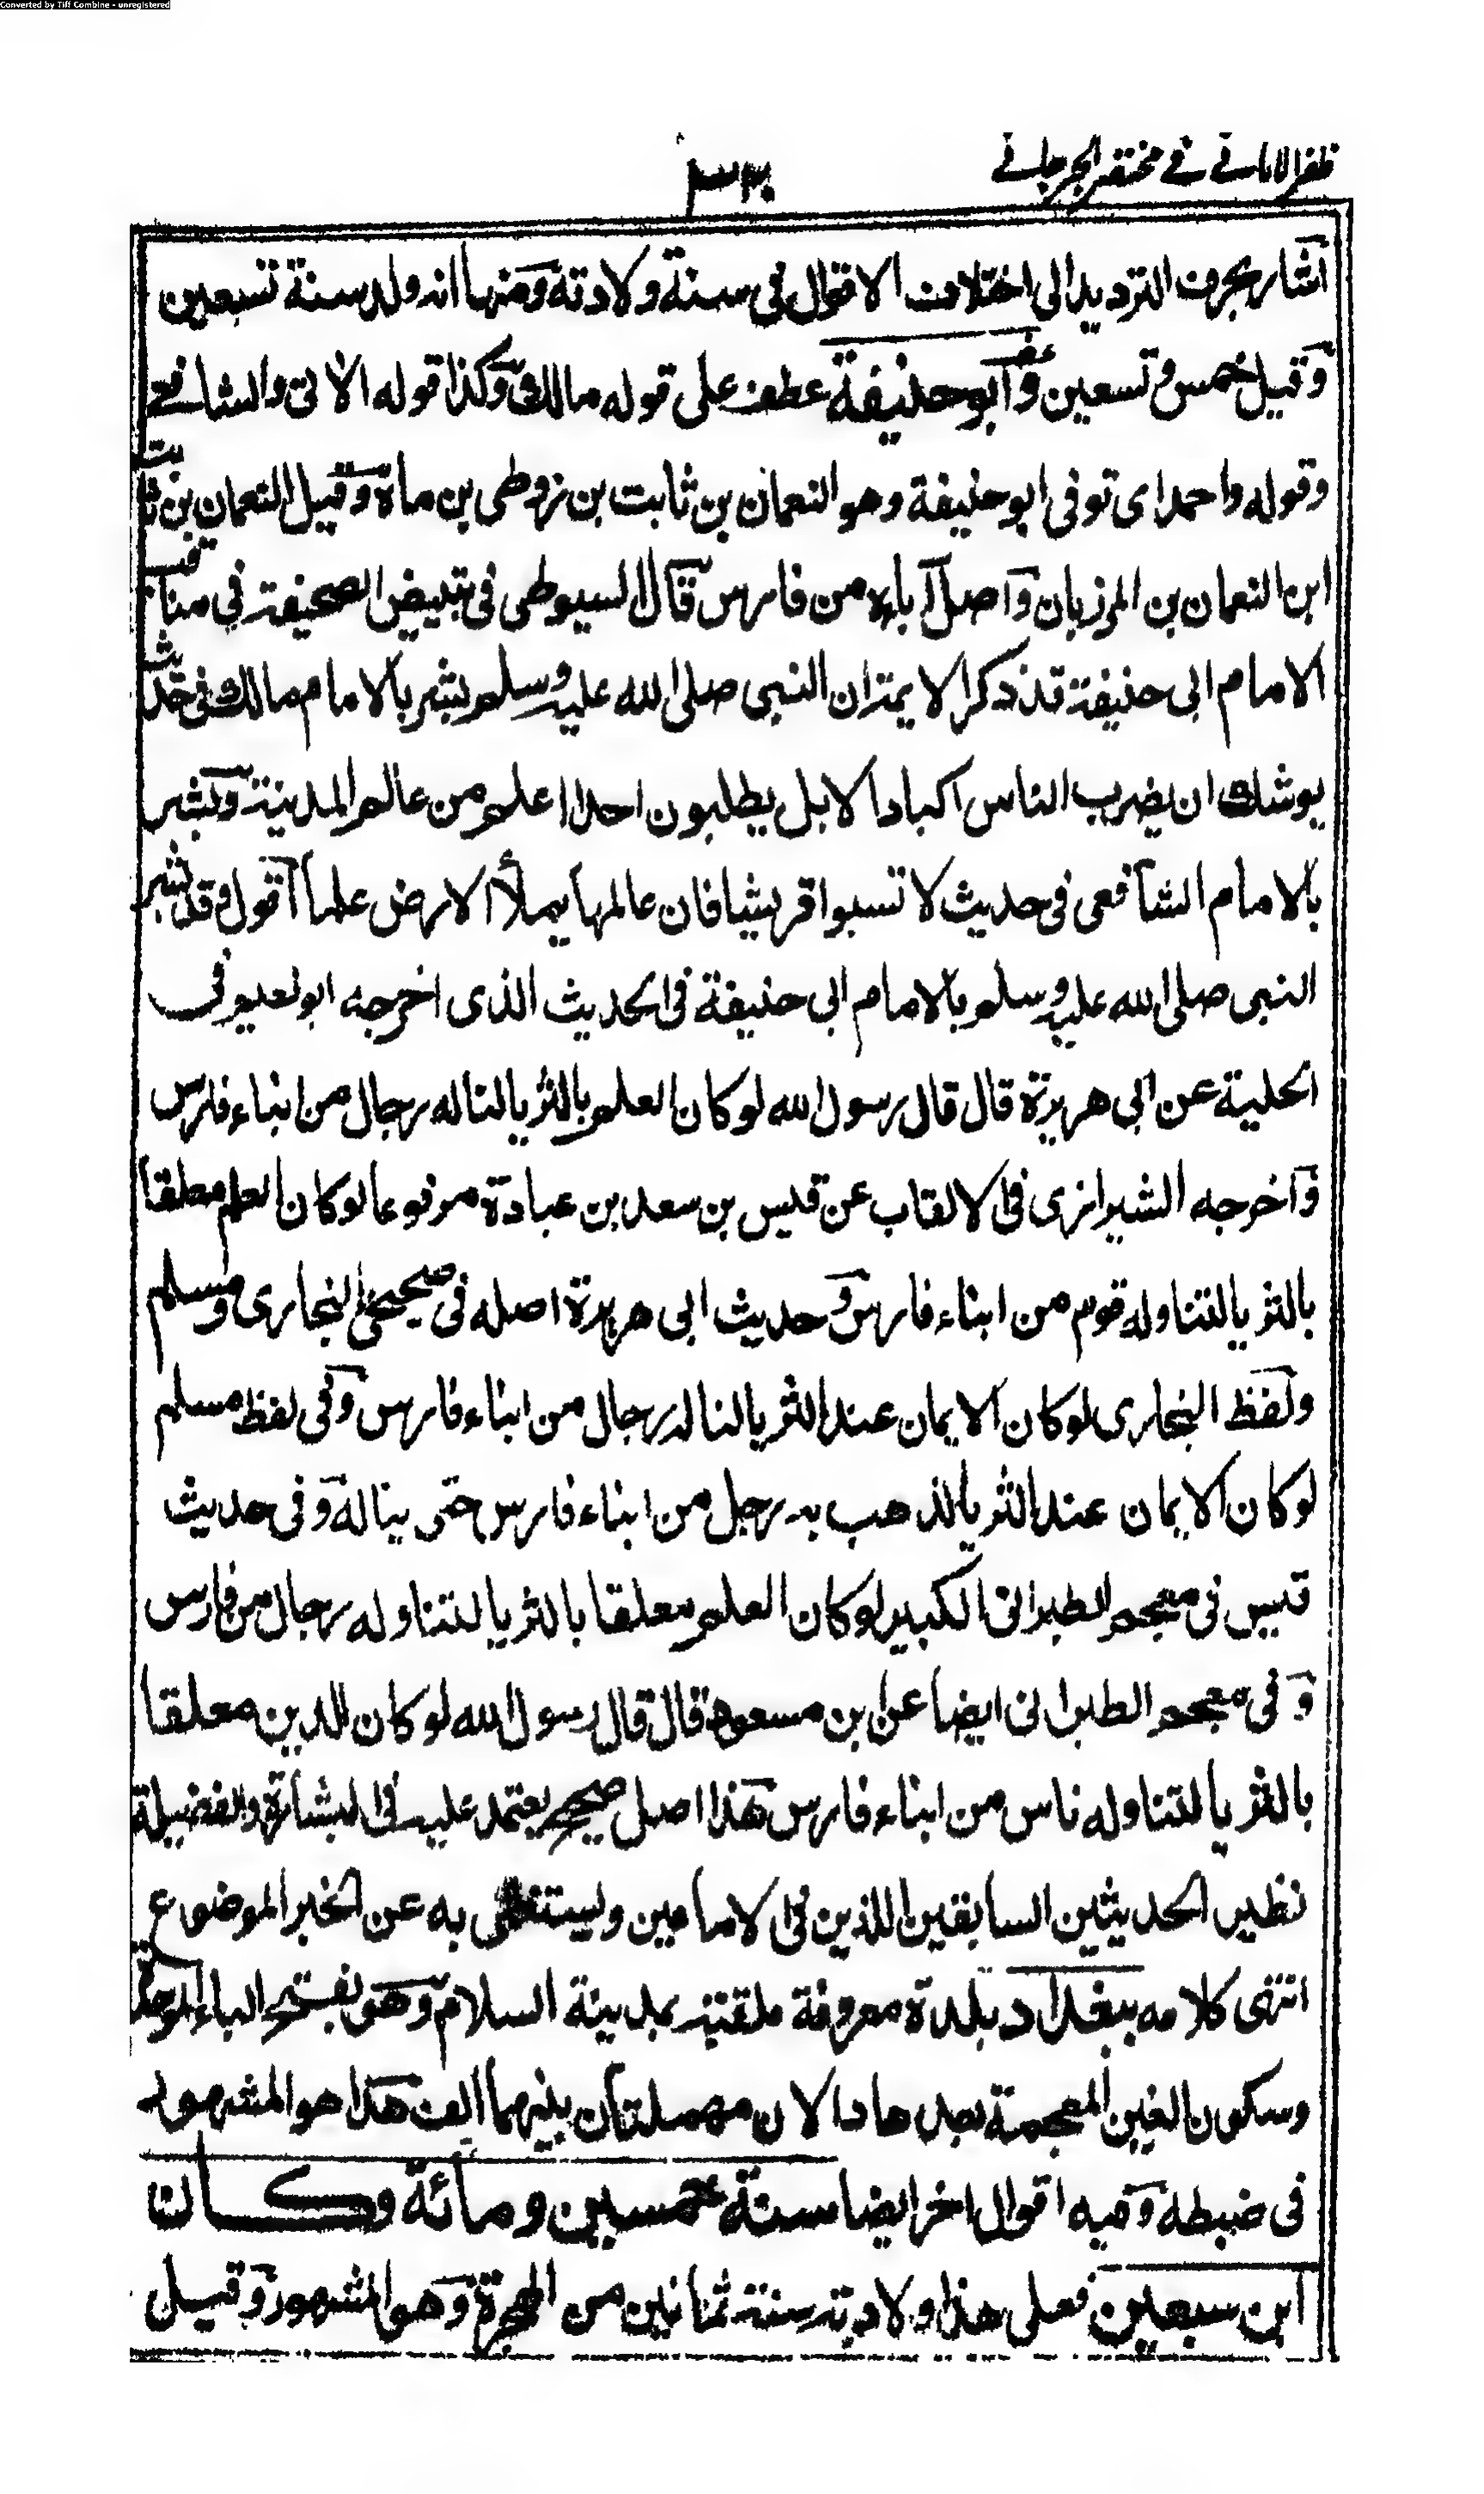 Converted by Tiff Combine - unregistered
ظفر الامانے فے مختصر الجرجانے
٣٢٠
اشار بحرف الترديد الى اختلاف الاقوال فى سنة ولادته ومنها انه ولد سنة تسعين
وقيل خمس وتسعين وابو حنيفة عطف على قوله مالك وكذا قوله الاتى والشافعے
وقوله واحمد اى توفى ابو حنيفة وهو النعمان بن ثابت بن زوطى بن ماه وقيل النعمان بن ثابت
ابن النعمان بن المرزبان واصل آباءه من فارس قال السيوطى فى تبييض الصحيفة فى مناقب
الامام ابى حنيفة قد ذكر الايمة ان النبى صلى الله عليه وسلم بشر بالامام مالك فى حديث
يوشك ان يضرب الناس اكباد الابل يطلبون احدا اعلم من عالم المدينة وبشر
بالامام الشافعى فى حديث لا تسبوا قريشا فان عالمها يملأ الارض علما اقول وقد بشر
النبى صلى الله عليه وسلم بالامام ابى حنيفة فى الحديث الذى اخرجه ابو نعيم فى
الحلية عن ابى هريرة قال قال رسول الله لو كان العلم بالثريا لناله رجال من ابناء فارس
واخرجه الشيرازى فى الالقاب عن قيس بن سعد بن عبادة مرفوعا لو كان العلم معلقا
بالثريا لتناوله قوم من ابناء فارس وحديث ابى هريرة اصله فى صحيحى البخارى ومسلم
ولفظ البخارى لو كان الايمان عند الثريا لناله رجال من ابناء فارس وفى لفظ مسلم
لو كان الايمان عند الثريا لذهب به رجل من ابناء فارس حتى يناله وفى حديث
قيس فى معجم الطبرانى الكبير لو كان العلم معلقا بالثريا لتناوله رجال من فارس
وفى معجم الطبرانى ايضا عن ابن مسعود قال قال رسول الله لو كان الدين معلقا
بالثريا لتناوله ناس من ابناء فارس فهذا اصل صحيح يعتمد عليه فى البشارة والفضيلة
نظير الحديثين السابقين اللذين فى الامامين ويستغنى به عن الخبر الموضوع
انتهى كلامه ببغداد بلدة معروفة ملقبة بمدينة السلام وهو بفتح الباء الموحدة
وسكون الغين المعجمة بعدها دالان مهملتان بينهما الف هذا هو المشهور
فى ضبطه وفيه اقوال اخر ايضا سنة خمسين ومائة وكان
ابن سبعين فعلى هذا ولادته سنة ثمانين من الهجرة وهو المشهور وقيل